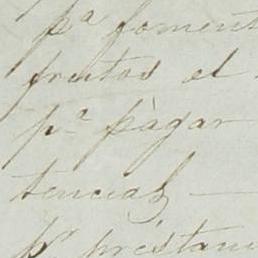 pª foment
frutos el
pª pàgar
tencias
pr préstam